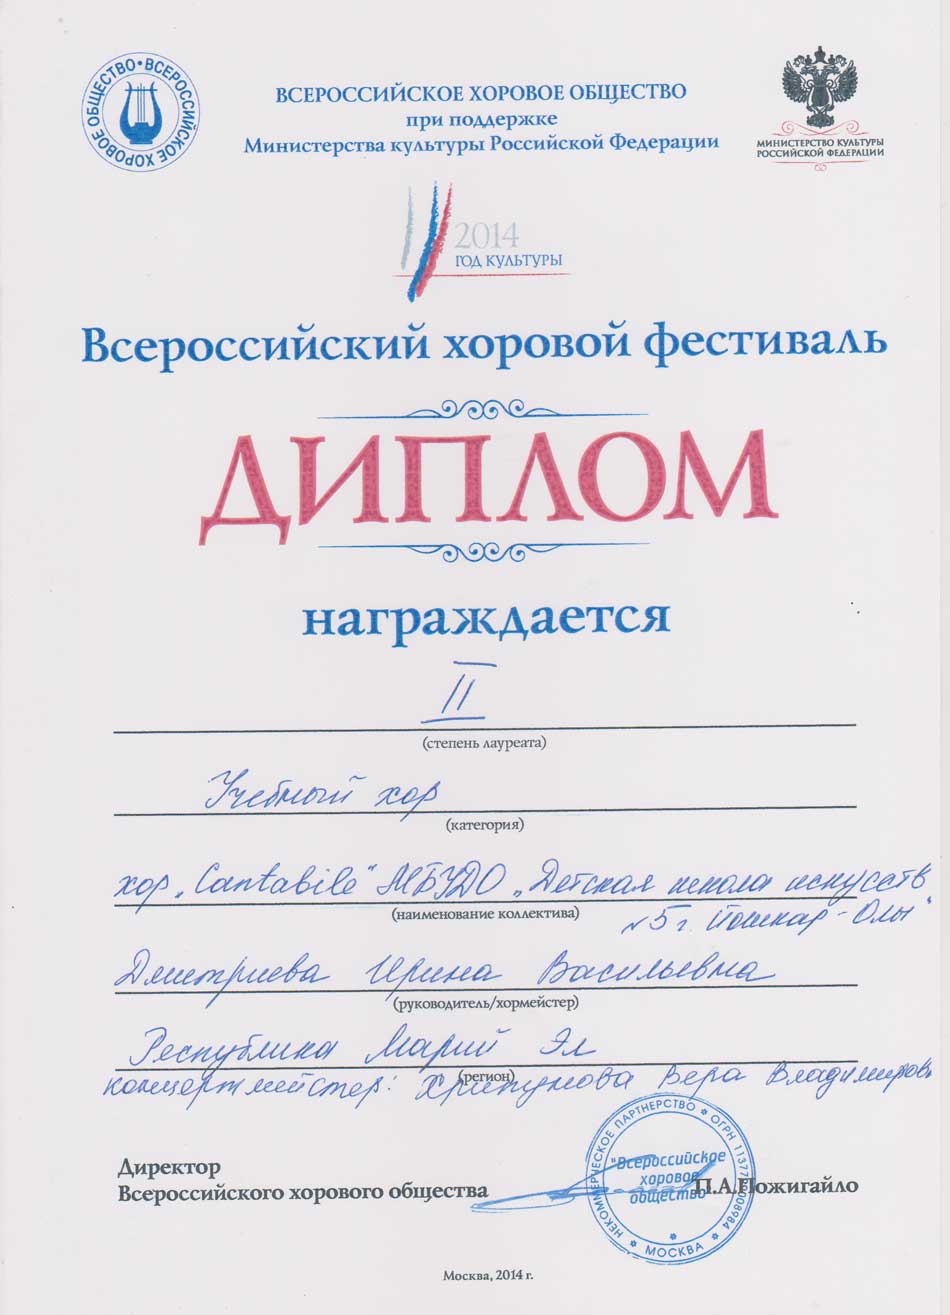 ВСЕРОССИЙСКОЕ ХОРОВОЕ ОБЩЕСТВО • ВСЕРОССИЙСКОЕ ХОРОВОЕ ОБЩЕСТВО
ВСЕРОССИЙСКОЕ ХОРОВОЕ ОБЩЕСТВО
при поддержке
Министерства культуры Российской Федерации
МИНИСТЕРСТВО КУЛЬТУРЫ
РОССИЙСКОЙ ФЕДЕРАЦИИ
2014
ГОД КУЛЬТУРЫ
Всероссийский хоровой фестиваль
ДИПЛОМ
награждается
II
(степень лауреата)
Учебный хор
(категория)
хор „Cantabile" МБУДО „Детская школа искусств
(наименование коллектива)
№5 г. Йошкар-Олы"
Дмитриева Ирина Васильевна
(руководитель/хормейстер)
Республика Марий Эл
(регион)
концертмейстер: Хрипунова Вера Владимировн
Директор
Всероссийского хорового общества
П.А.Пожигайло
НЕКОММЕРЧЕСКОЕ ПАРТНЕРСТВО * ОГРН
* МОСКВА *
"Всероссийское
хоровое
общество"
Москва, 2014 г.